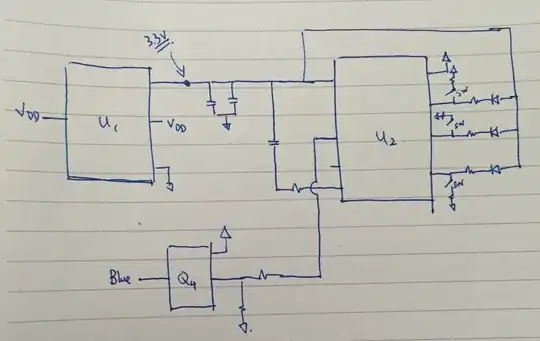 3.3V
VDD
U1
VDD
U2
SW
SW
SW
Blue
Q4